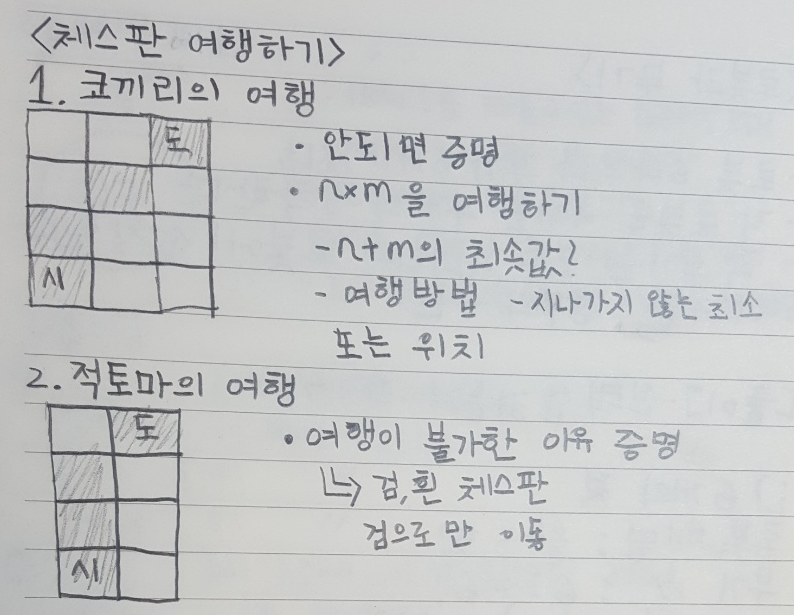 <체스판 여행하기>
1. 코끼리의 여행
도
시
• 안되면 증명
• n×m을 여행하기
-n+m의 최솟값?
- 여행방법 -지나가지 않는 최소
또는 위치
2. 적토마의 여행
도
시
• 여행이 불가한 이유 증명
↳ 검,흰 체스판
검으로만 이동